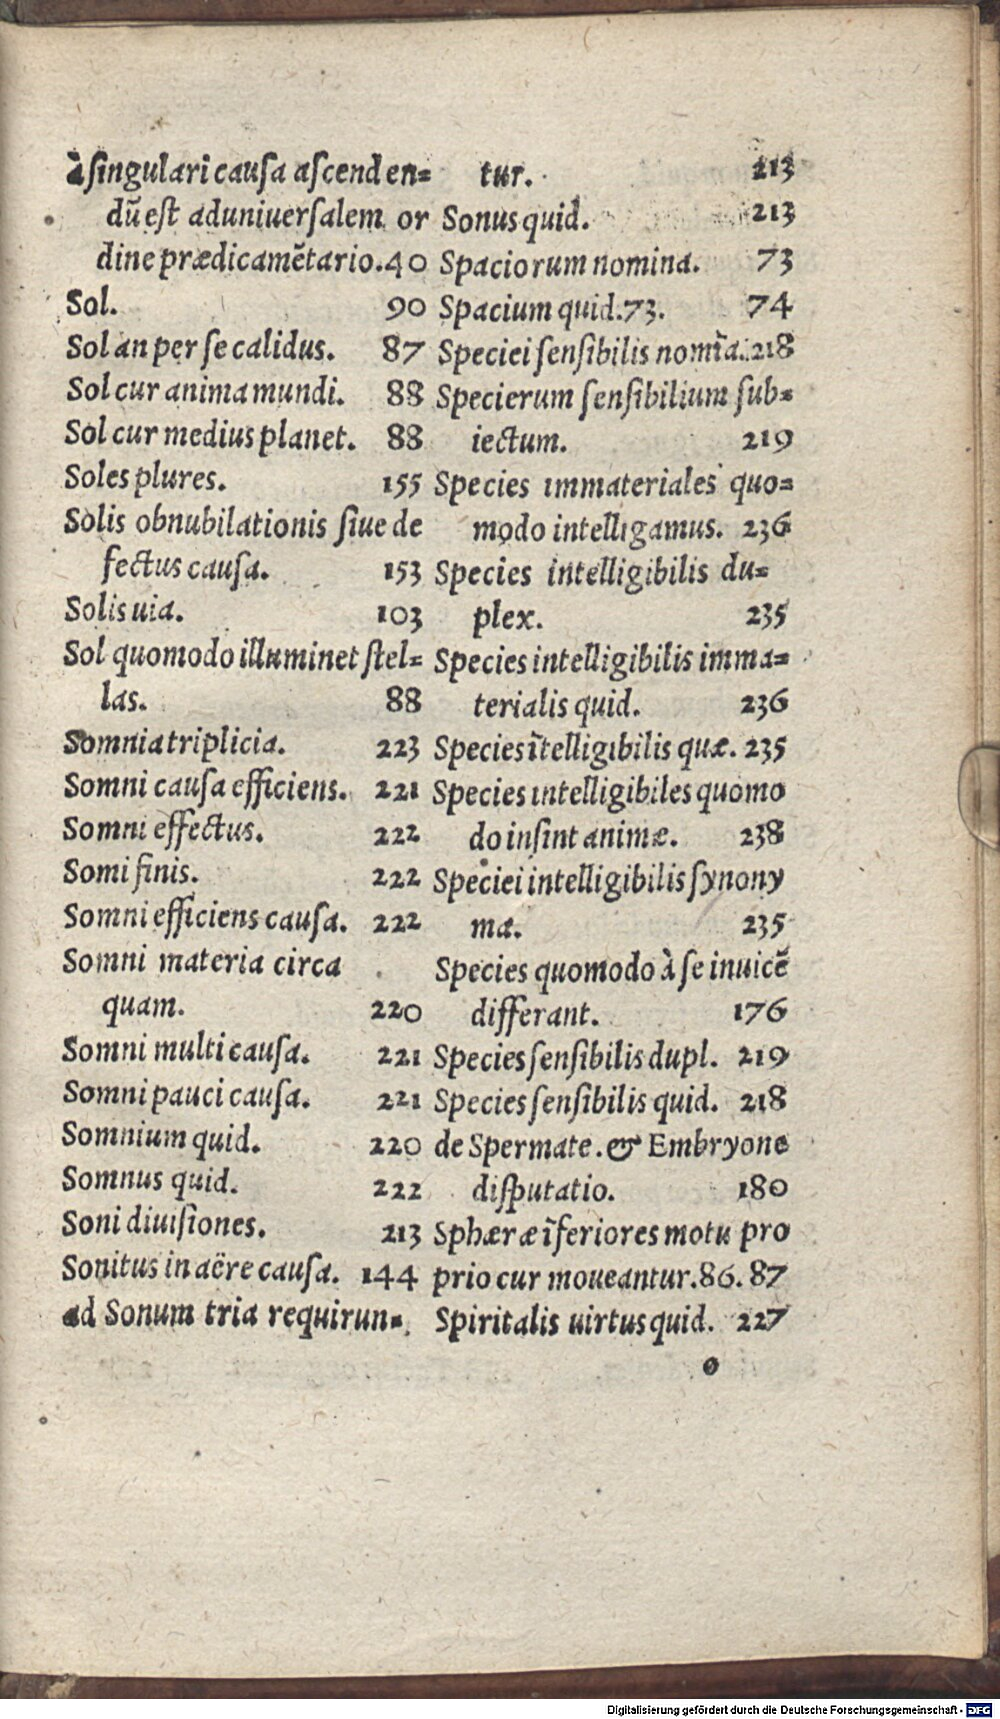 à ſingulari cauſa aſcenden⸗
dū eſt ad uniuerſalem or
dine prædicamētario. 40
Sol. 90
Sol an per ſe calidus. 87
Sol cur anima mundi. 88
Sol cur medius planet. 88
Soles plures. 155
Solis obnubilationis ſiue de
fectus cauſa. 153
Solis uia. 103
Sol quomodo illuminet ſtel⸗
las. 88
Somnia triplicia. 223
Somni cauſa efficiens. 221
Somni effectus. 222
Somi finis. 222
Somni efficiens cauſa. 222
Somni materia circa
quam. 220
Somni multi cauſa. 221
Somni pauci cauſa. 221
Somnium quid. 220
Somnus quid. 222
Soni diuiſiones. 213
Sonitus in aëre cauſa. 144
ad Sonum tria requirun⸗
tur. 213
Sonus quid. 213
Spaciorum nomina. 73
Spacium quid. 73. 74
Speciei ſenſibilis nomīa. 218
Specierum ſenſibilium ſub⸗
iectum. 219
Species immateriales quo⸗
modo intelligamus. 236
Species intelligibilis du⸗
plex. 235
Species intelligibilis imma⸗
terialis quid. 236
Species ītelligibilis quæ. 235
Species intelligibiles quomo
do inſint animæ. 238
Speciei intelligibilis ſynony
ma. 235
Species quomodo à ſe inuicē
differant. 176
Species ſenſibilis dupl. 219
Species ſenſibilis quid. 218
de Spermate. & Embryone
diſputatio. 180
Sphæræ īferiores motu pro
prio cur moueantur. 86. 87
Spiritalis uirtus quid. 227
o
Digitalisierung gefördert durch die Deutsche Forschungsgemeinschaft - DFG